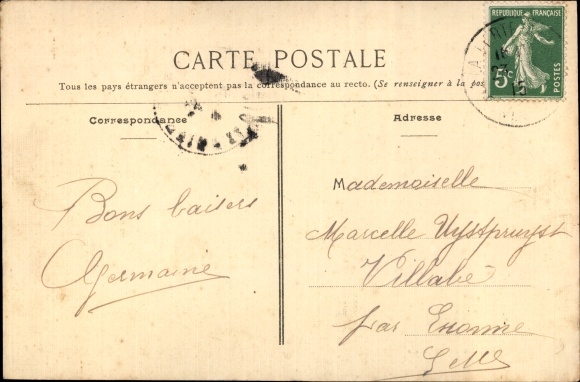 RÉPUBLIQUE FRANÇAISE
5c
POSTES
CARTE POSTALE
Tous les pays étrangers n'acceptent pas la correspondance au recto. (Se renseigner à la pos
Correspondance
Adresse
Bons baisers
Germaine
Mademoiselle
Marcelle Uytspruyst
Villabé
par Essonne